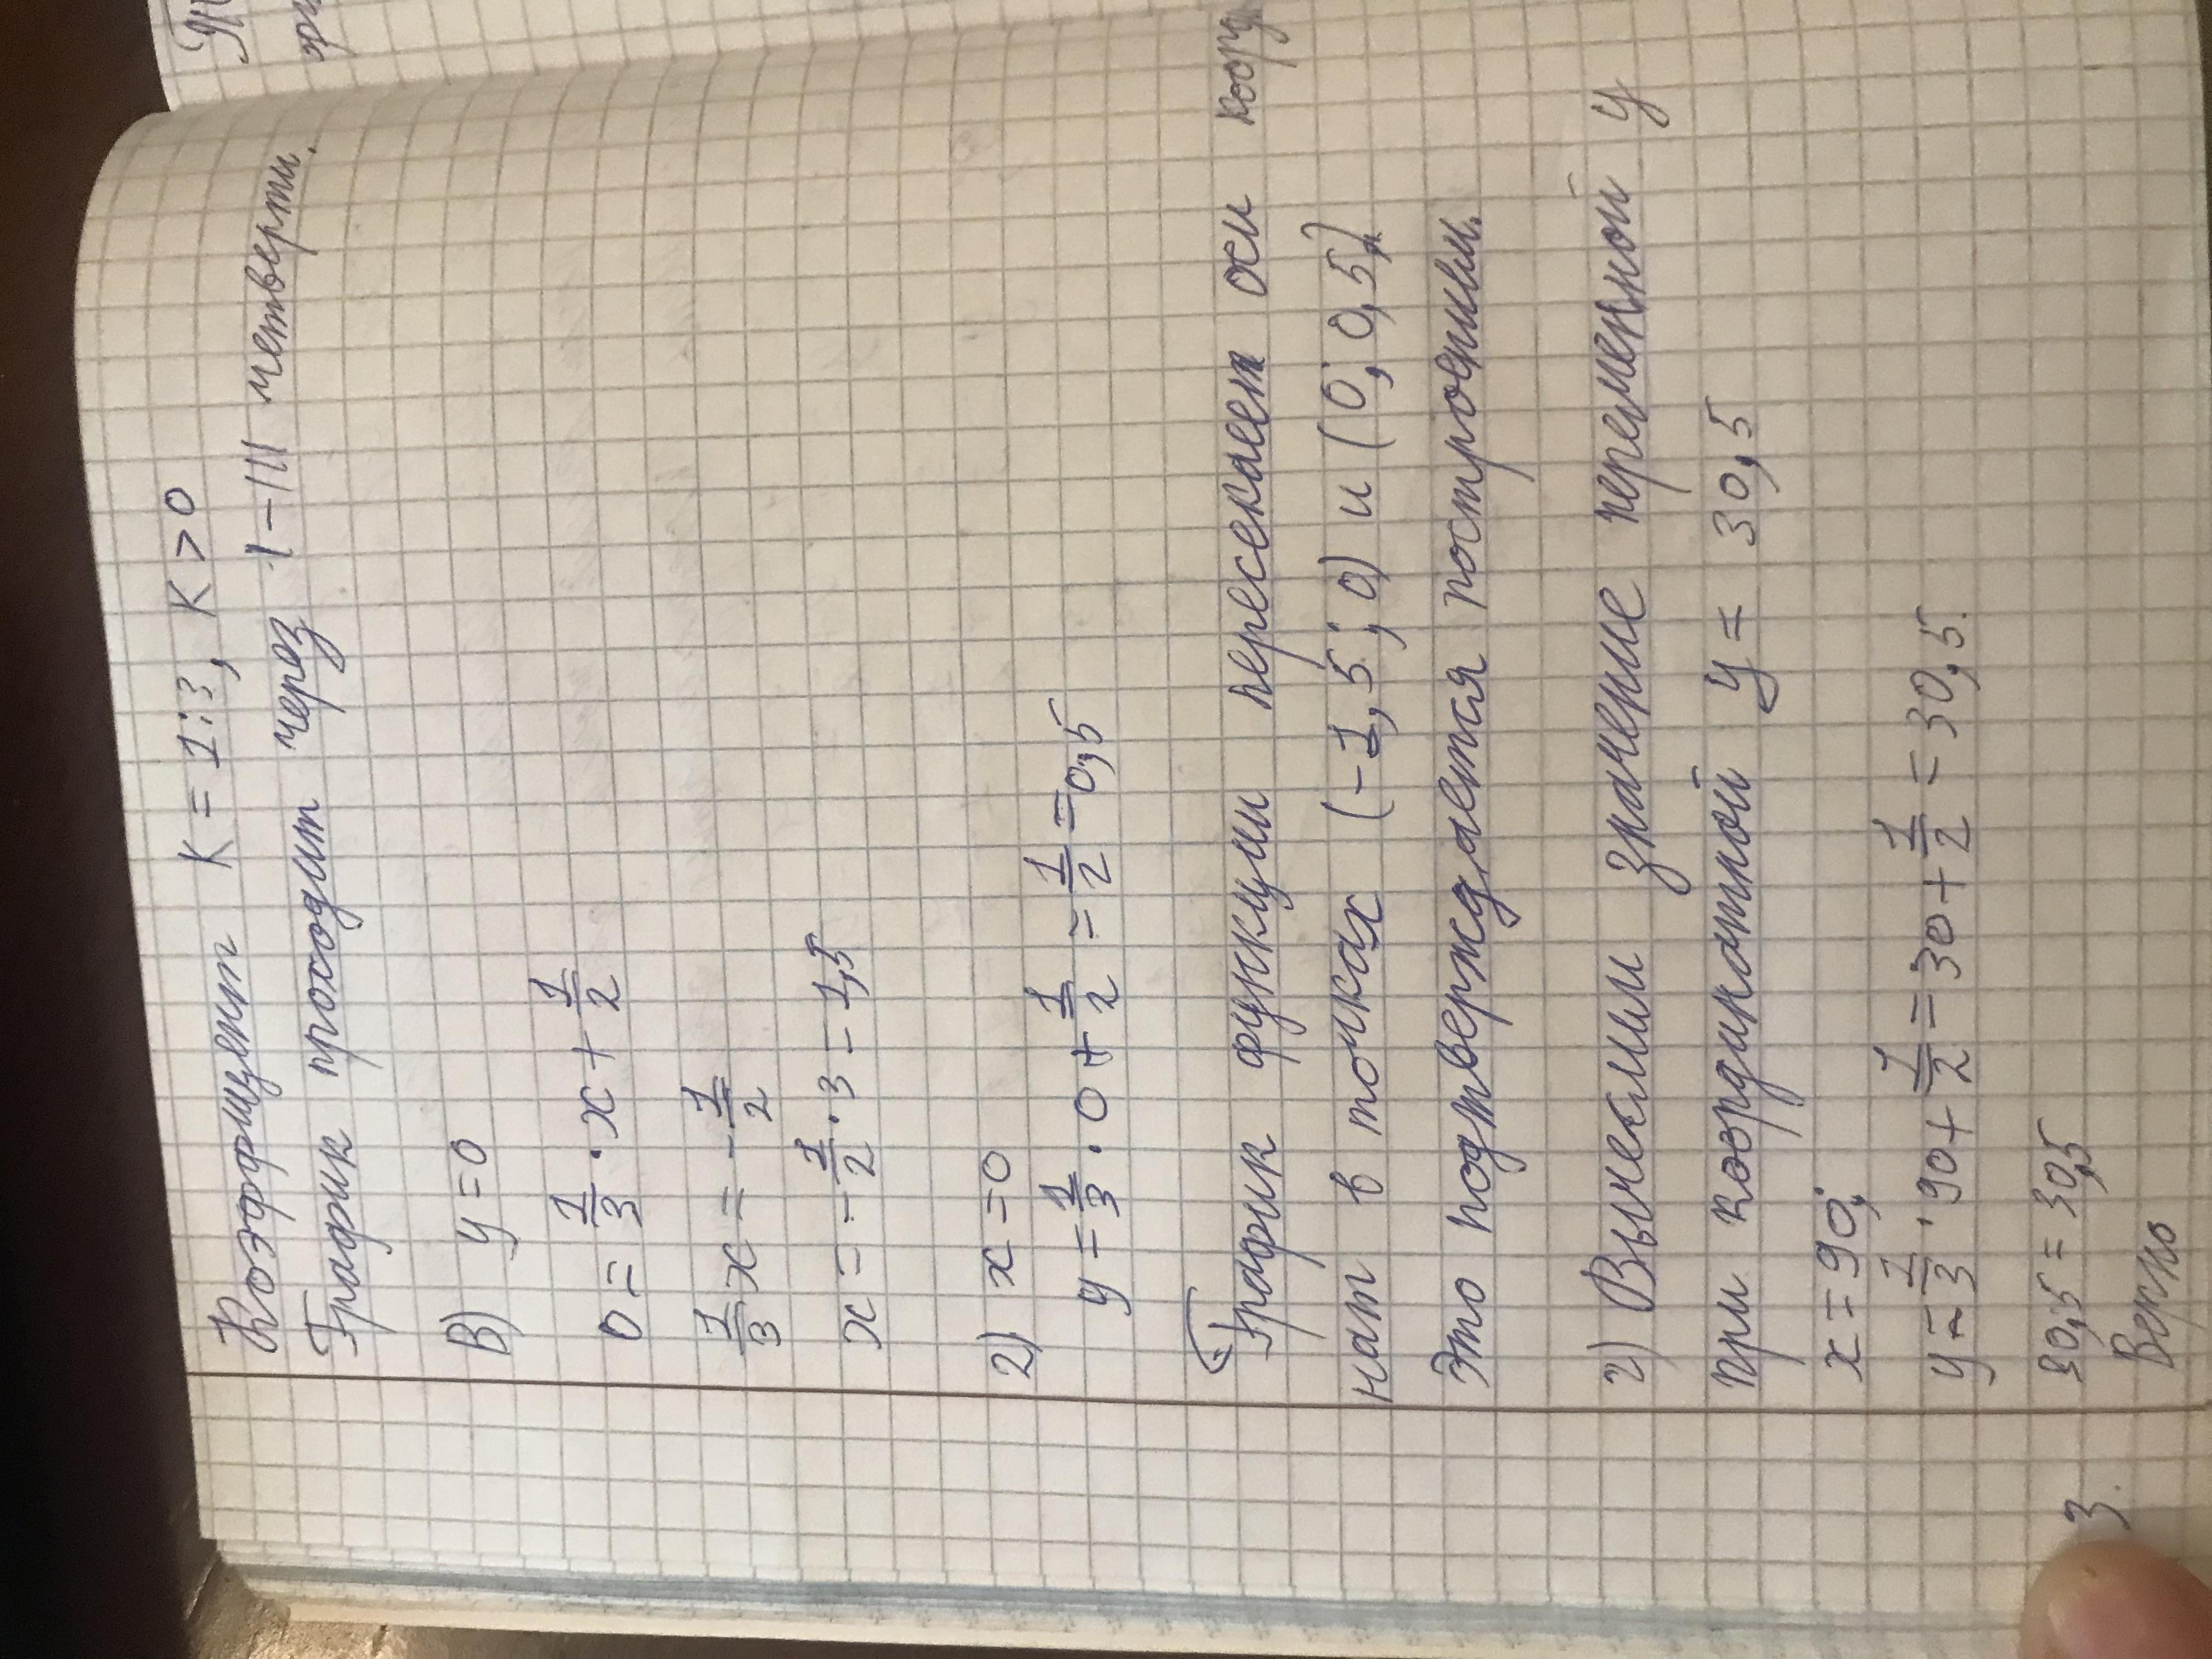 Коэффициент K = 1:3, K > 0
График проходит через I – III четверти.
В) y = 0
0 = 1/3 · x + 1/2
1/3 x = - 1/2
x = - 1/2 · 3 = - 1,5
2) x = 0
y = 1/3 · 0 + 1/2 = 1/2 = 0,5
График функции пересекает оси коорд
нат в точках (-1,5; 0) и (0; 0,5).
Это подтверждается построением.
г) Вычеслим значение переменной y
при координатной y = 30,5
x = 90;
y = 1/3 · 90 + 1/2 = 30 + 1/2 = 30,5.
30,5 = 30,5
Верно
3.